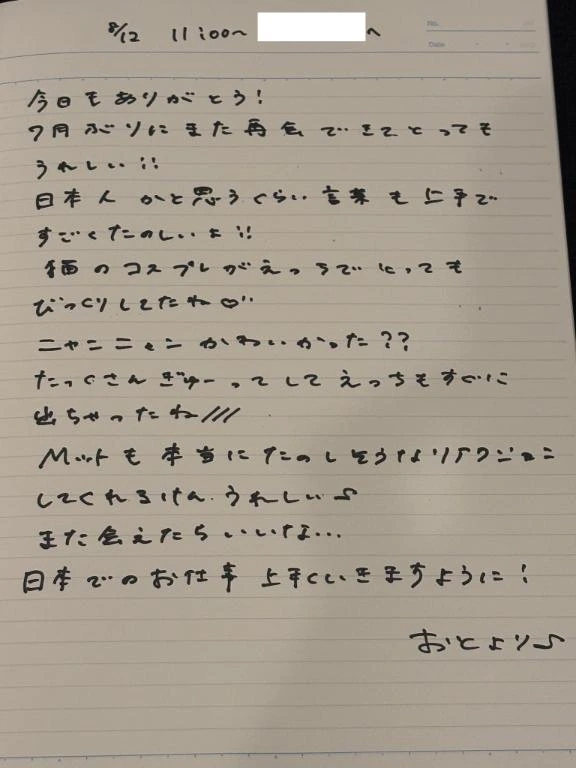 8/12 11:00〜 へ
No.
Date
今日もありがとう!
7月ぶりにまた再会できてとっても
うれしい!!
日本人かと思うくらい言葉も上手で
すごくたのしいよ!!
猫のコスプレがえっちでにっても
びっくりしてたね♡!!
ニャンニャン かわいかった??
たっくさんぎゅーってしてえっちもすぐに
出ちゃったね///
Mットも本当にたのしそうなリアクション
してくれるけん、うれしい♪
また会えたらいいな...
日本でのお仕事 上手くいきますように!
おとより♪